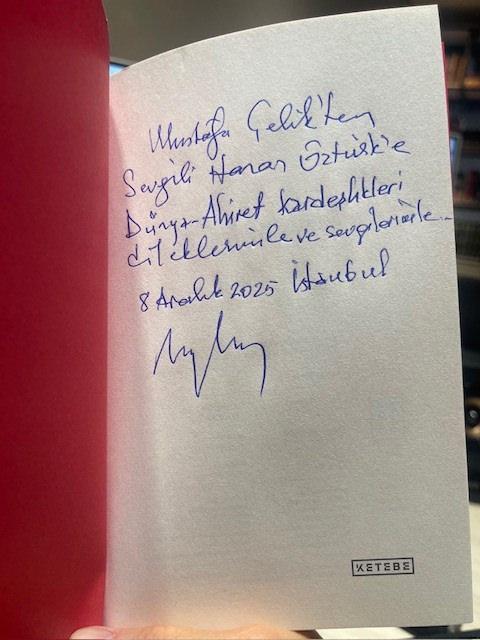 Mustafa Çelik'ten
Sevgili Hanan Öztürk'e
Dünya-Ahiret kardeşlikleri
dileklerimle ve sevgilerimle...
8 Aralık 2025 İstanbul
KETEBE